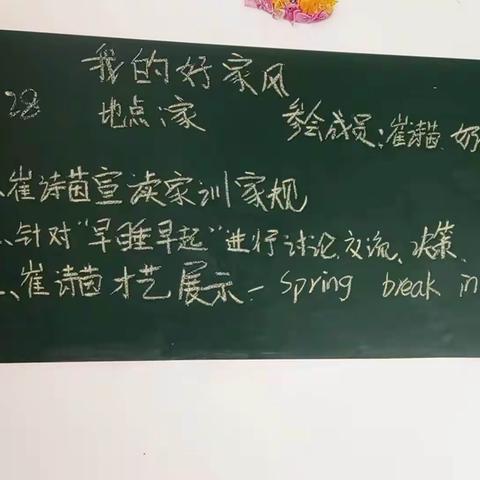 我的好家风
28 地点:家 参会成员:崔诗茵、奶
、崔诗茵宣读家训家规
、针对“早睡早起”进行讨论、交流、决策、
二、崔诗茵才艺展示—Spring break in